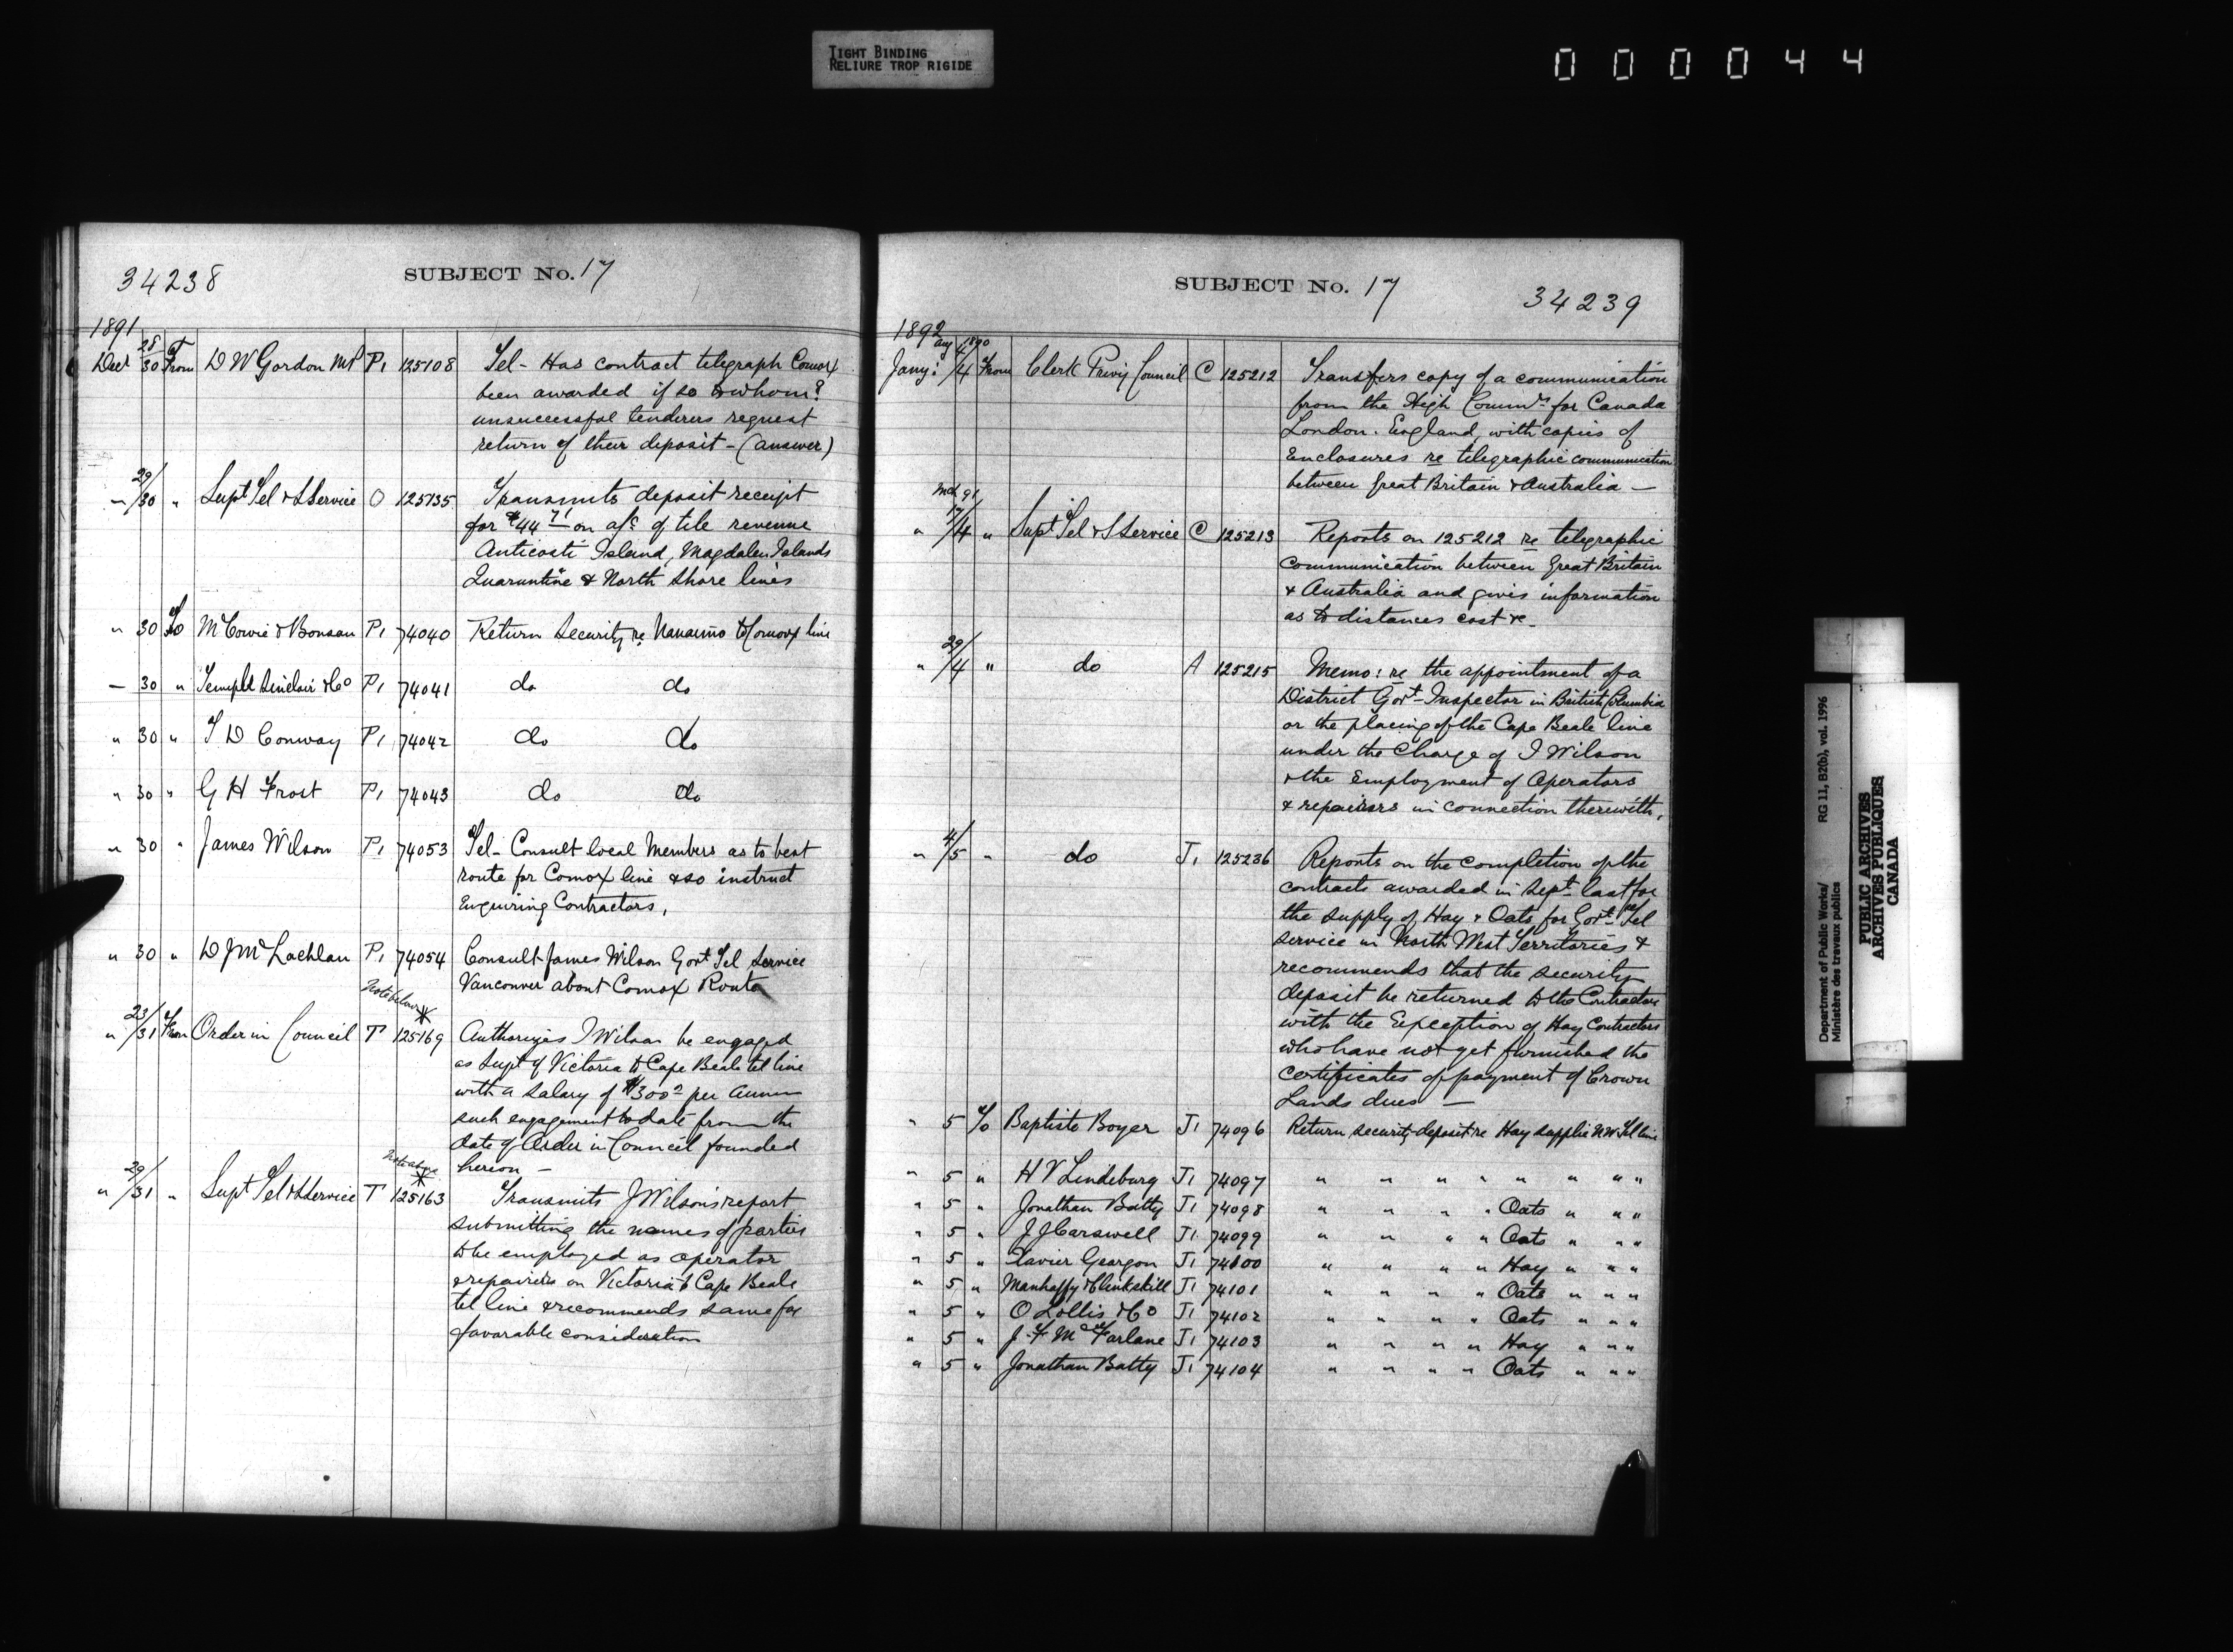 TIGHT BINDING
RELIURE TROP RIGIDE
000044
34238
SUBJECT No. 17
1891
Decr 28/30 From D W Gordon MP P1 125108 Tel - Has contract telegraph Comox
been awarded if so to whom?
unsuccessful tenderers request
return of their deposit - (answer)
" 29/30 " Supt Tel & S Service O 125135 Transmits deposit receipt
for $44 71 on a/c of tile revenue
Anticosti Island, Magdalen Islands
Quarantine & North Shore lines
" 30 To McCowie & Bonsau P1 74040 Return Security re Nanaimo & Comox line
— 30 " Temple Sinclair & Co P1 74041 do do
" 30 " T D Conway P1 74042 do do
" 30 " G H Frost P1 74043 do do
" 30 " James Wilson P1 74053 Tel - Consult local Members as to best
route for Comox line & so instruct
Enquiring Contractors,
" 30 " D J McLachlan P1 74054 Consult James Wilson Govt Tel Service
Vancouver about Comox Route
Note below *
" 23/31 From Order in Council T 125169 Authorizes J Wilson be engaged
as Supt of Victoria to Cape Beale tel line
with a salary of $300 per annum
such engagement to date from the
date of Order in Council founded
hereon —
Note above *
" 29/31 " Supt Tel & S Service T 125163 Transmits J Wilson's report
submitting the names of parties
to be employed as operator
& repairers on Victoria to Cape Beale
tel line & recommends same for
favorable consideration
SUBJECT No. 17
34239
1892
Aug 1890
Jany: 4/4 From Clerk Privy Council C 125212 Transfers copy of a communication
from the High Commr for Canada
London. England, with copies of
Enclosures re telegraphic communication
between Great Britain & Australia —
Mch 91
" 17/4 " Supt Tel & S Service C 125213 Reports on 125212 re telegraphic
communication between Great Britain
& Australia and gives information
as to distances cost &c.
" 29/4 " do A 125215 Memo: re the appointment of a
District Govt Inspector in British Columbia
or the placing of the Cape Beale line
under the Charge of J Wilson
& the Employment of Operators
& repairers in connection therewith,
" 4/5 " do J1 125236 Reports on the completion of the
contracts awarded in Sept last for
the supply of Hay & Oats for Govt Tel
service in North West Territories &
recommends that the security
deposit be returned to the Contractors
with the Exception of Hay Contractors
who have not yet furnished the
certificates of payment of Crown
Lands dues —
" 5 To Baptiste Boyer J1 74096 Return security deposit re Hay supplie N W Tel line
" 5 " H V Lindeburg J1 74097 " " " " " " " "
" 5 " Jonathan Batty J1 74098 " " " " Oats " " "
" 5 " J J Carswell J1 74099 " " " " Oats " " "
" 5 " Xavier Geargon J1 74100 " " " " Hay " " "
" 5 " Manhaffy & Clinkskill J1 74101 " " " " Oats " " "
" 5 " O Lollis & Co J1 74102 " " " " Oats " " "
" 5 " J. F McFarlane J1 74103 " " " " Hay " " "
" 5 " Jonathan Batty J1 74104 " " " " Oats " " "
Department of Public Works/
Ministère des travaux publics
RG 11, B2(b), vol. 1996
PUBLIC ARCHIVES
ARCHIVES PUBLIQUES
CANADA